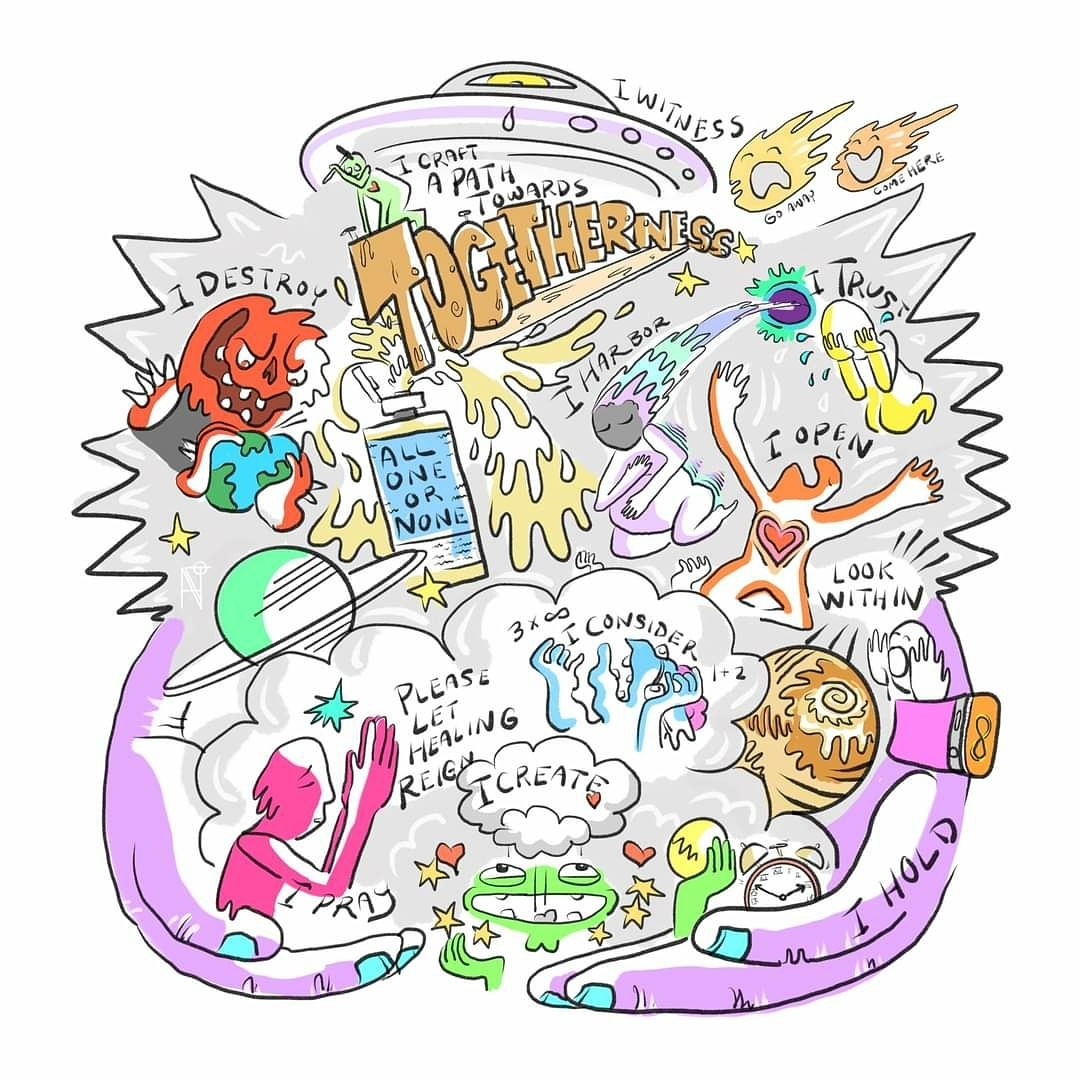 I WITNESS
GO AWAY
COME HERE
I CRAFT
A PATH
TOWARDS
TOGETHERNESS
I DESTROY
I TRUST
I HARBOR
I OPEN
ALL
ONE
OR
NONE
LOOK
WITHIN
3 x ∞
I CONSIDER
1+2
PLEASE
LET
HEALING
REIGN
I CREATE
I PRAY
I HOLD